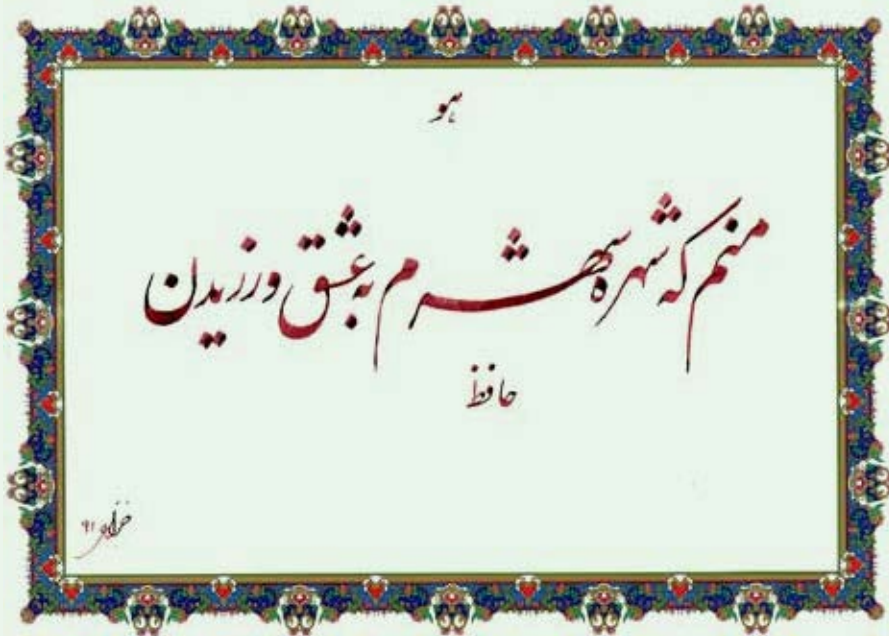 هو
منم که شهره شهرم به عشق ورزیدن
حافظ
۹۱